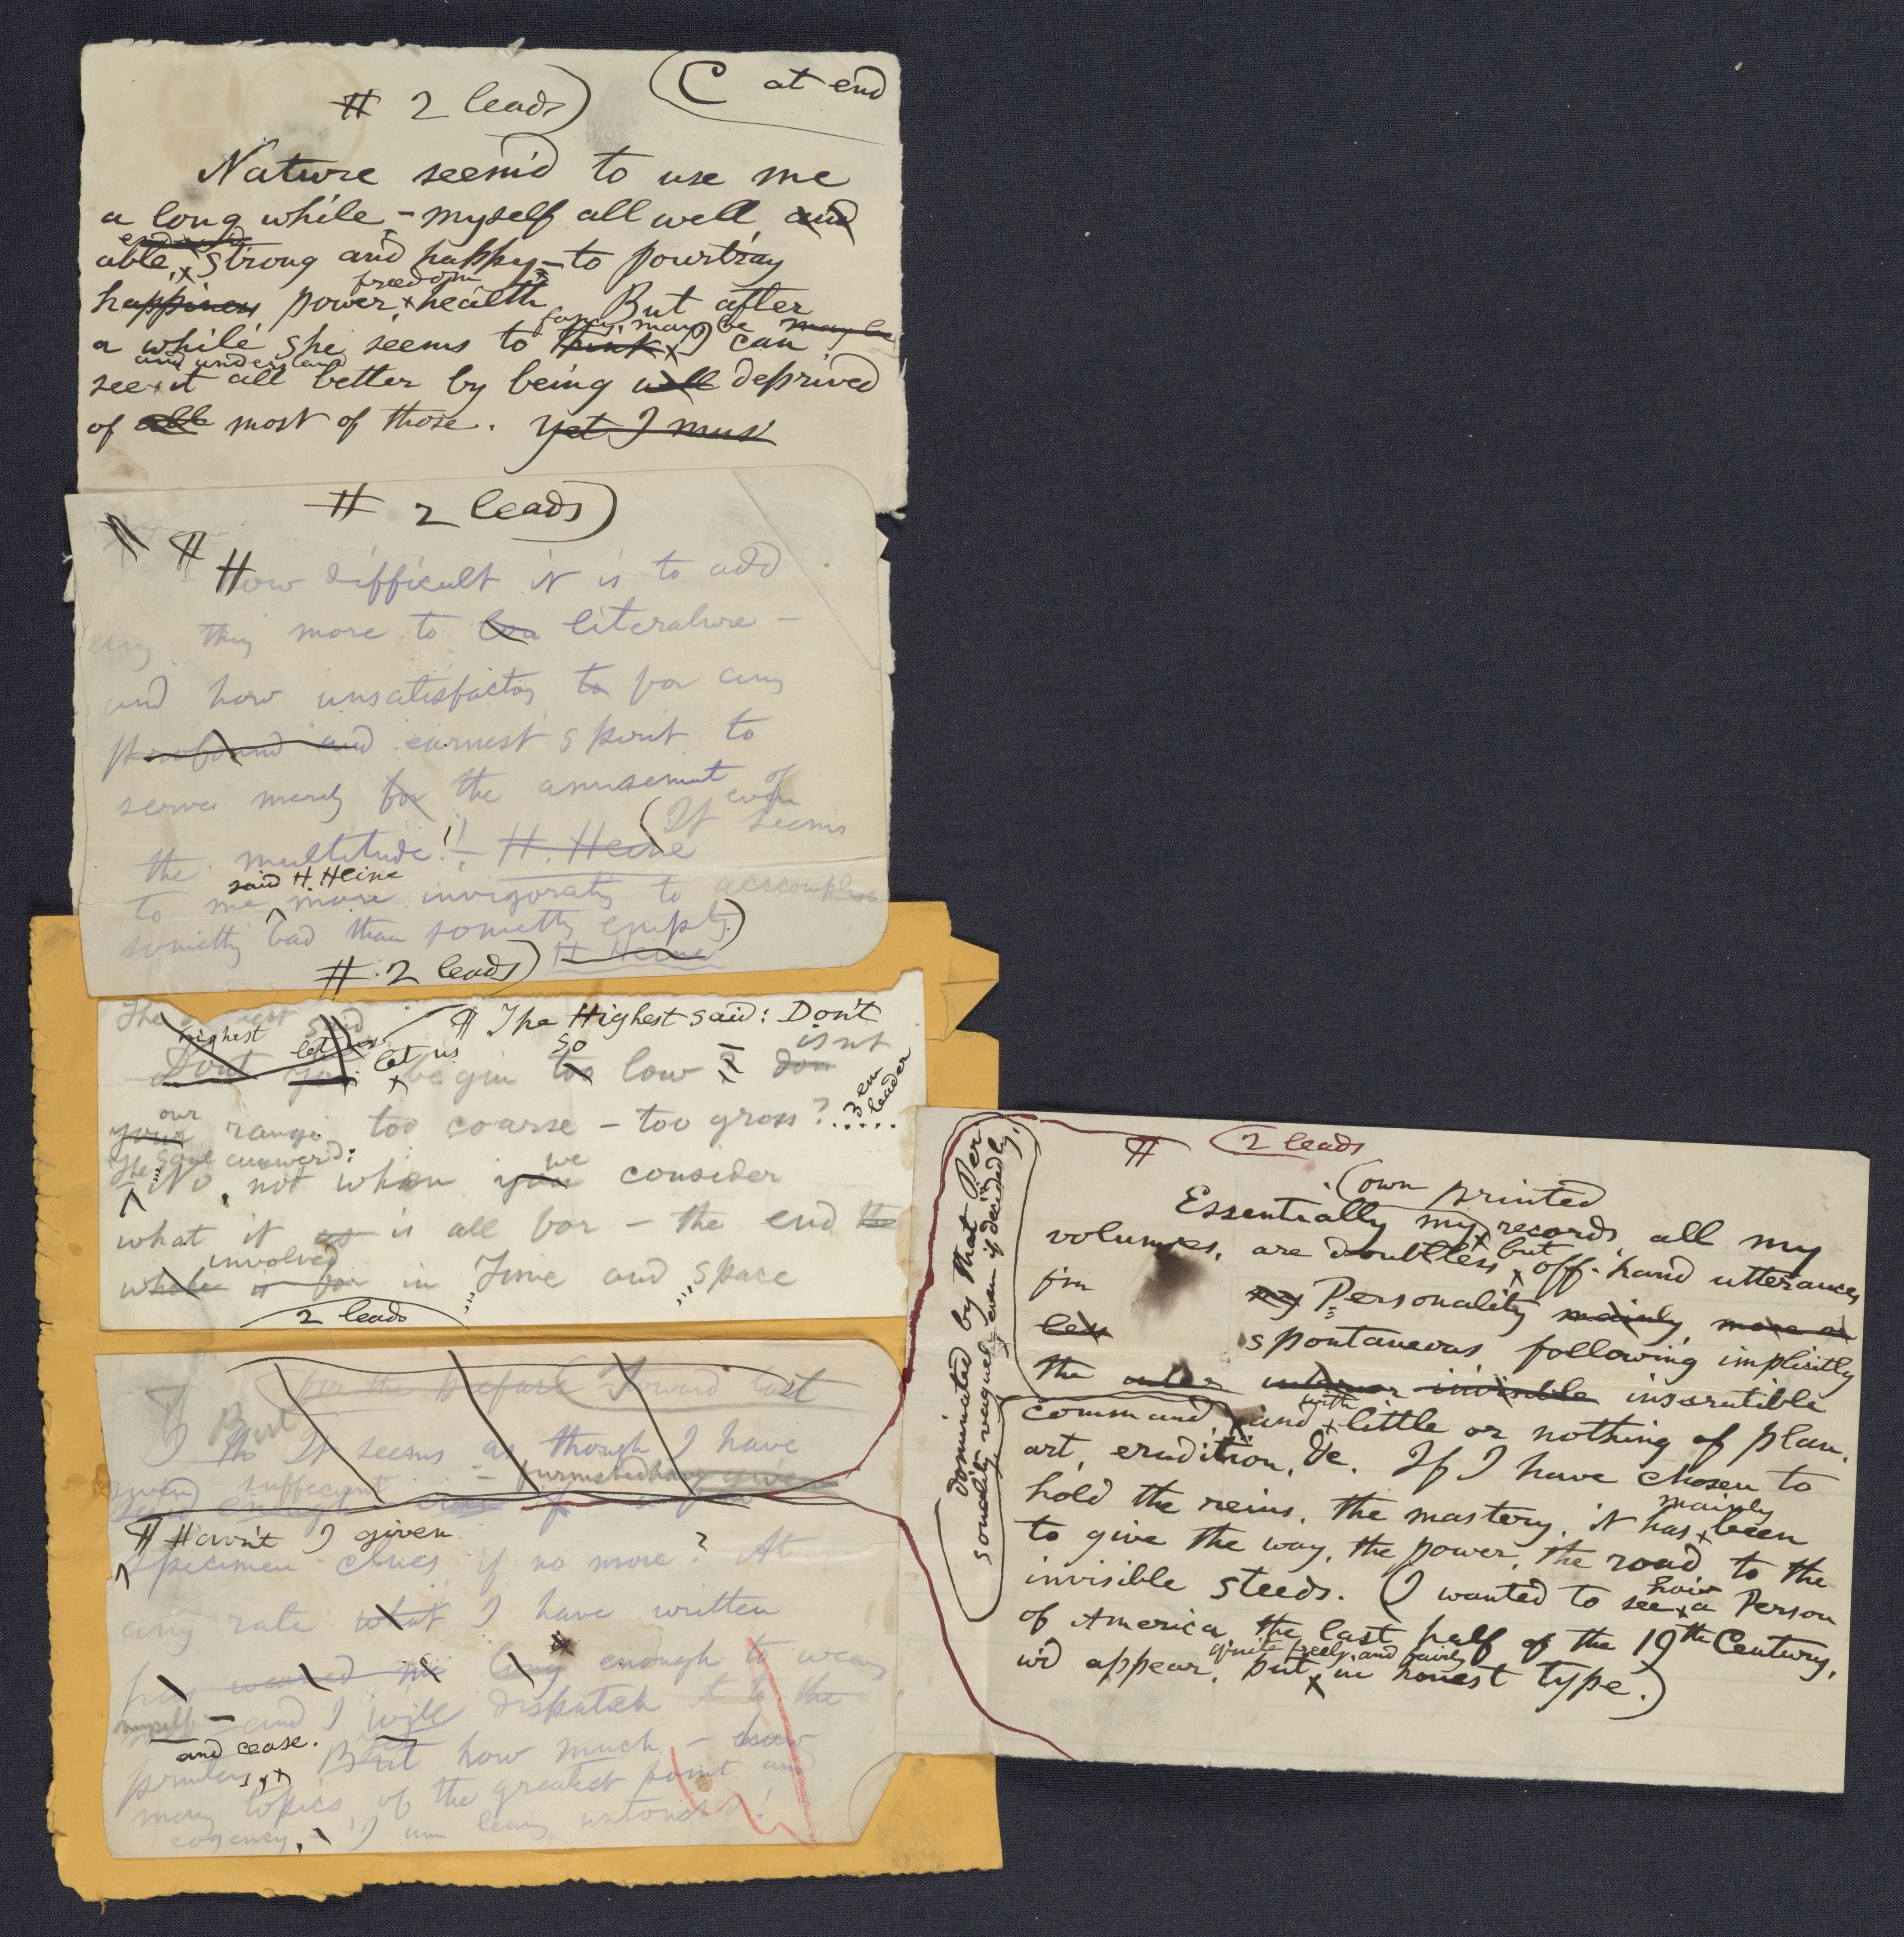 # 2 leads) (C at end
Nature seem'd to use me
a long while – myself all well, and
able, strong and happy – to pourtray
freedom
happiness power, health. But after
fancy, may be may be
a while she seems to think I can
and understand
see it all better by being well deprived
of all most of those. Yet I must
# 2 leads)
¶ How difficult it is to add
any thing more to literature –
and how unsatisfactory to for any
profound and earnest spirit to
serve merely for the amusement of
even
the multitude! – H. Heine (It seems
said H. Heine
to me more invigorating to accomplish
something bad than something empty.)
# 2 leads) H Heine
The said ¶ The Highest said: Don't
highest let us isnt
Dont you let us begin too so low – ? don
our 3 em leader
your range too coarse – too gross? .....
The Soul answer'd:
No, not when you we consider
what it is all for – the end the
involved
whole is for in Time and Space
2 leads
for the preface (Toward last
But
I th It seems as though I have
sufficient – furnished have given
said enough for a few
¶ Havn't I given
specimen clues if no more? At
any rate what I have written
weaned me long enough to weary
myself – and I will dispatch it to the
and cease.
printers, But how much – how
many topics, of the greatest point and
cogency, – I am leaving untouch'd!
¶ (2 leads
(own printed
Essentially my records, all my
volumes, are doubtless but off-hand utterances
f'm my Personality mainly, more or
less spontaneous following implicitly
the inter interior invisible inscrutible
with
command and little or nothing of plan,
art, erudition, &c. If I have chosen to
hold the reins, the mastery, it has mainly been
to give the way, the power, the road to the
invisible steeds. (I wanted to see how a Person
of America, the last half of the 19th Century,
quite freely and fairly
w'd appear, but in honest type.)
dominated by that Per
sonality vaguely even if decidedly.